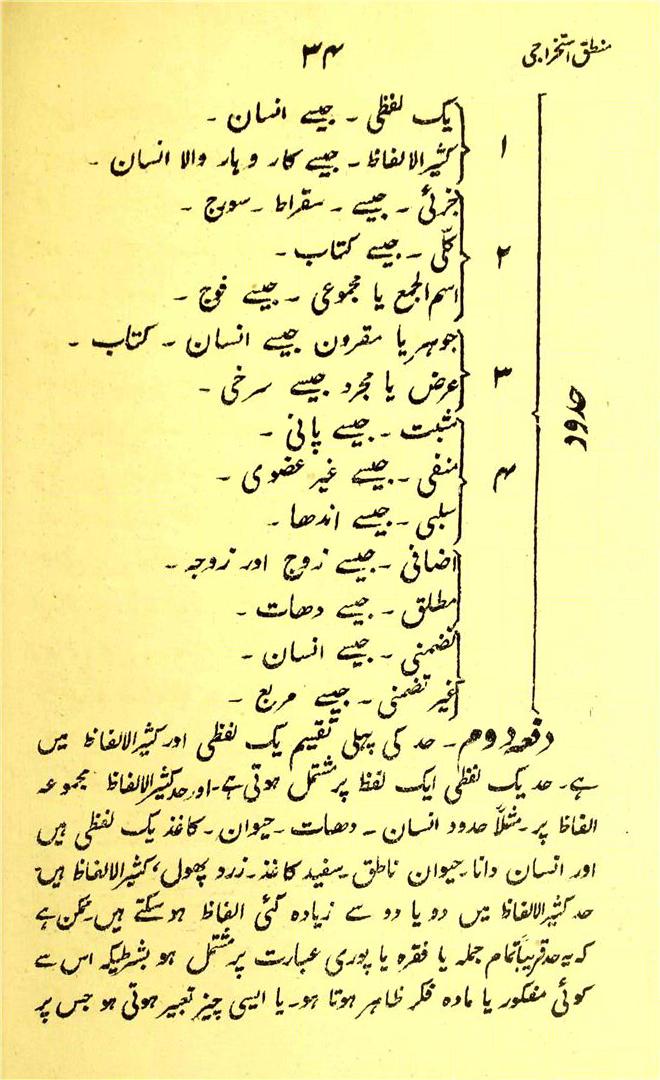 منطق استخراجی
۳۴
حدود
۱
یک لفظی ۔ جیسے انسان ۔
کثیرالالفاظ ۔ جیسے کار و بار والا انسان ۔
۲
جزئی ۔ جیسے ۔ سقراط ۔ سورج ۔
کلّی ۔ جیسے کتاب ۔
اسم الجمع یا مجموعی ۔ جیسے فوج ۔
۳
جوہر یا مقرون جیسے انسان ۔ کتاب ۔
عرض یا مجرد جیسے سرخی ۔
۴
مثبت ۔ جیسے پانی ۔
منفی ۔ جیسے غیر عضوی ۔
سلبی ۔ جیسے اندھا ۔
اضافی ۔ جیسے زوج اور زوجہ ۔
مطلق ۔ جیسے دھات ۔
تضمنی ۔ جیسے انسان ۔
غیر تضمنی ۔ جیسے مربع ۔
دفعہ دوم ۔ حد کی پہلی تقسیم یک لفظی اور کثیرالالفاظ میں
ہے۔ حد یک لفظی ایک لفظ پر مشتمل ہوتی ہے۔ اور حد کثیرالالفاظ مجموعہ
الفاظ پر ۔ مثلاً حدود انسان ۔ دھات ۔ حیوان ۔ کاغذ یک لفظی ہیں
اور انسان دانا۔ حیوان ناطق ۔ سفید کاغذ ۔ زرد پھول، کثیرالالفاظ ہیں
حد کثیرالالفاظ میں دو یا دو سے زیادہ کئی الفاظ ہو سکتے ہیں۔ ممکن ہے
کہ یہ حد قریباً تمام جملہ یا فقرہ یا پوری عبارت پر مشتمل ہو بشرطیکہ اس سے
کوئی مفکور یا مادہ فکر ظاہر ہوتا ہو۔ یا ایسی چیز تعبیر ہوتی ہو جس پر